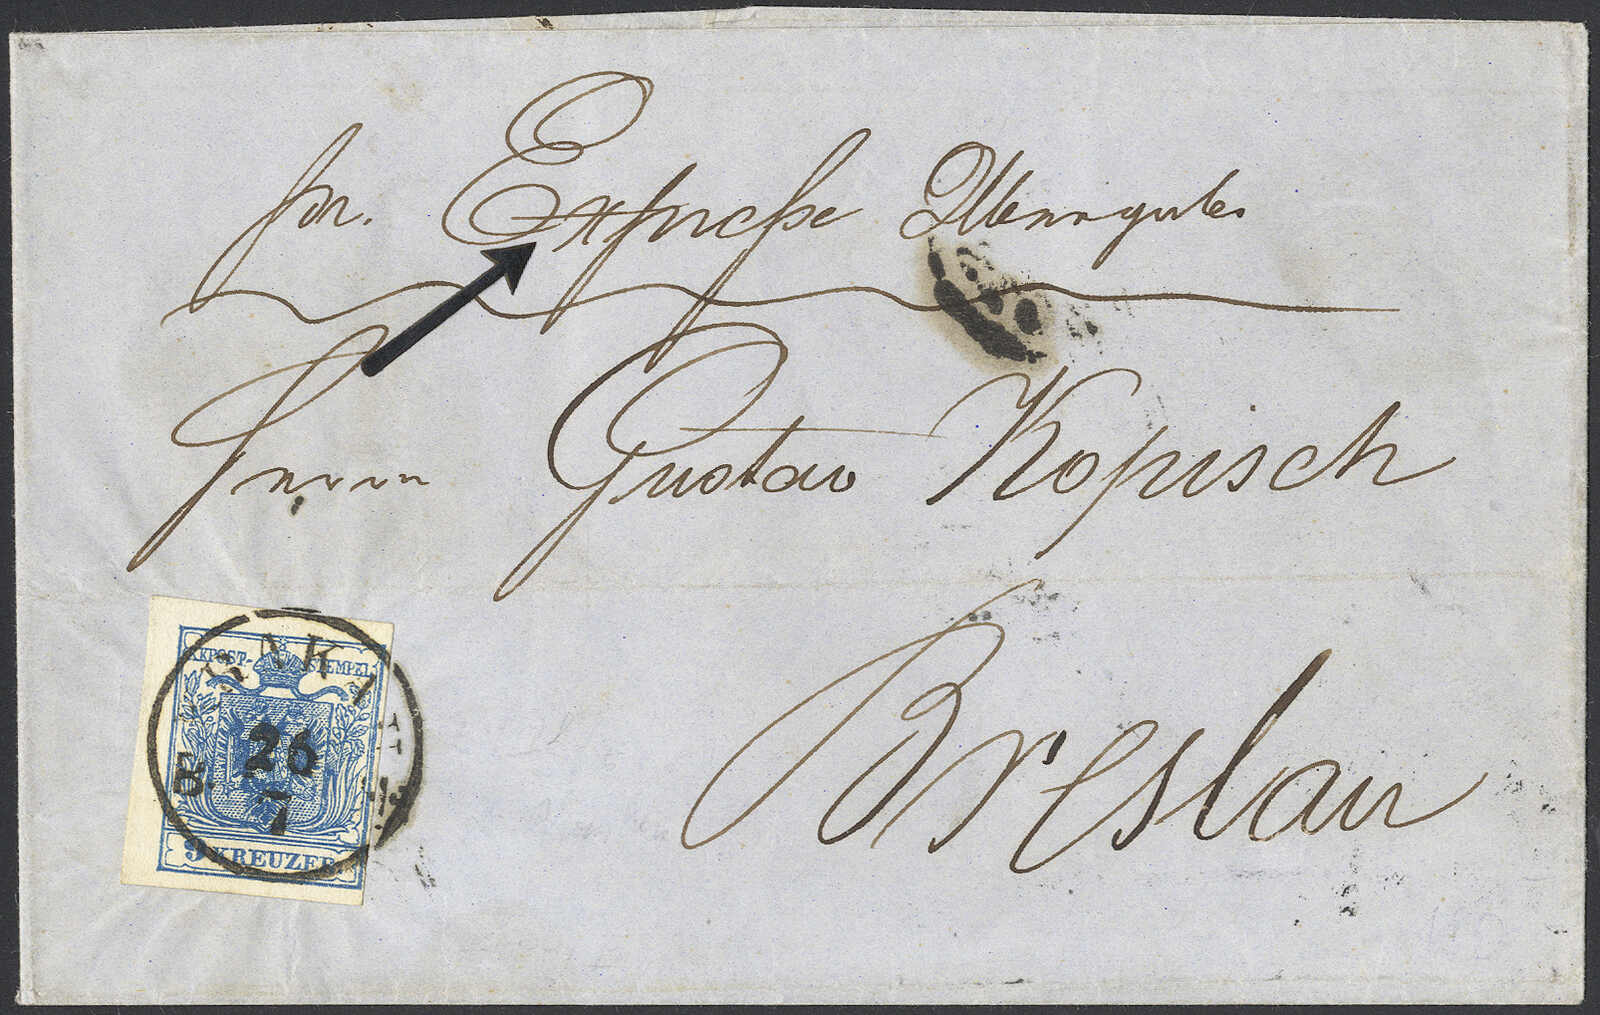 pr. Expresse
Herrn Gustav Kopisch
Breslau
KKPOST-STEMPEL
26
7
9 KREUZER